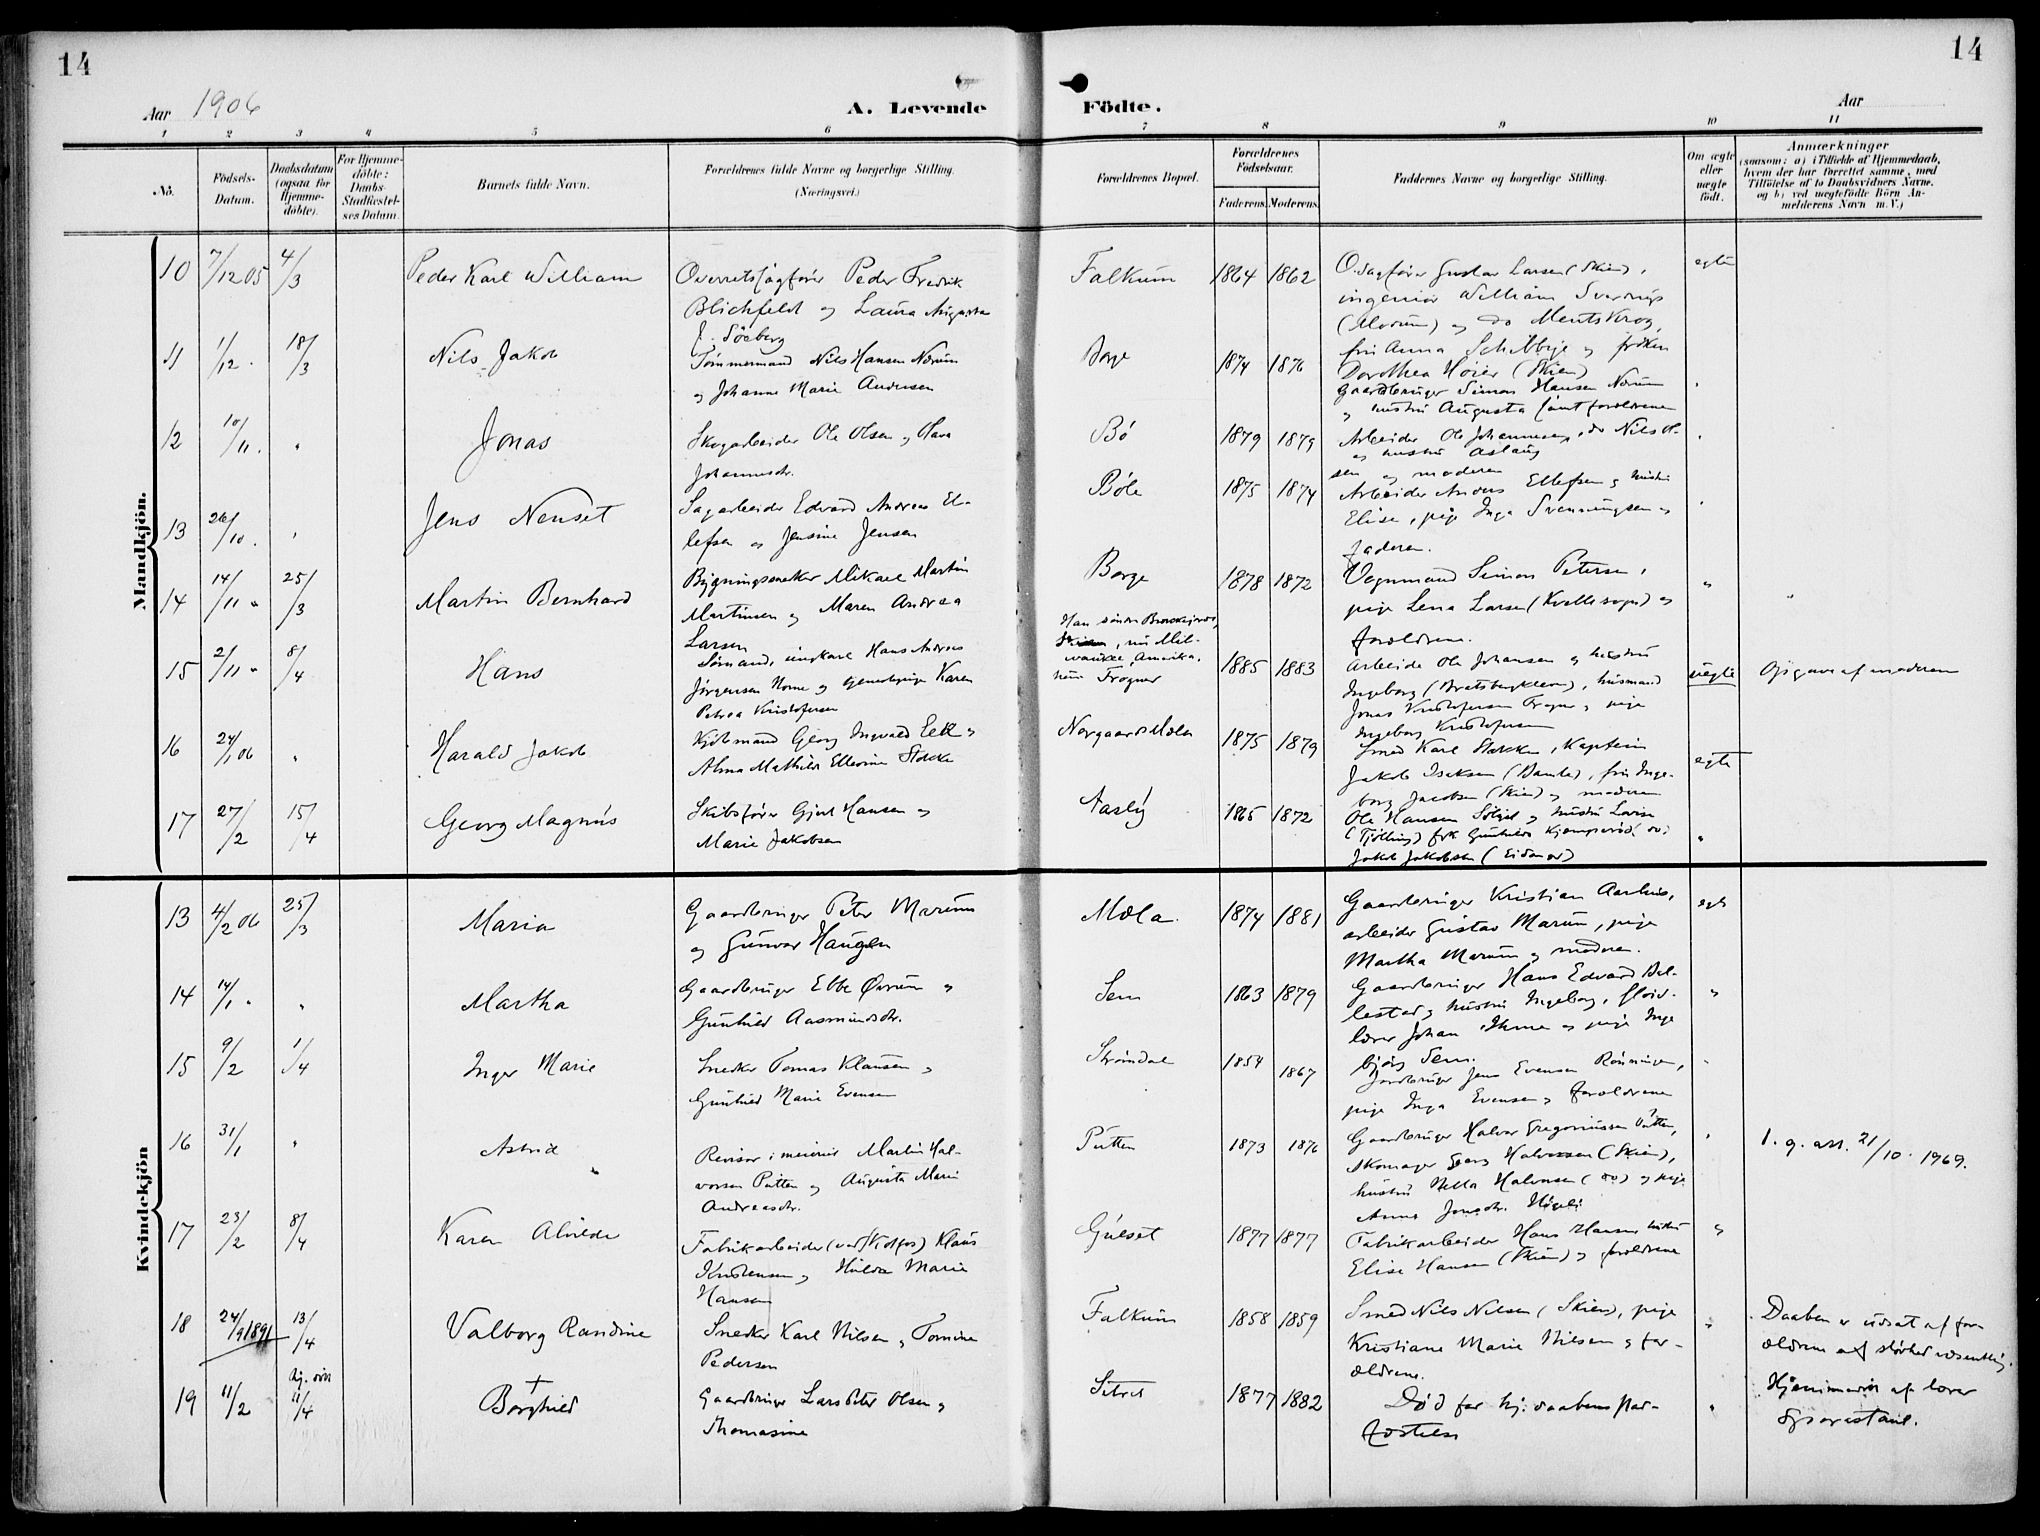 14
14
Aar 1906
A. Levende Födte.
Aar
1 2 3 4 5 6 7 8 9 10 11
No.
Födsels-
Datum.
Daabsdatum
(ogsaa for
Hjemme-
döbte).
For Hjemme-
döbte:
Daabs-
Stadfæstel-
ses Datum.
Barnets fulde Navn.
Forældrenes fulde Navne og borgerlige Stilling.
(Næringsvei.)
Forældrenes Bopæl.
Forældrenes
Födselsaar.
Faderens. Moderens.
Faddernes Navne og borgerlige Stilling.
Om ægte
eller
uægte
födt.
Anmærkninger
(saasom: a) i Tilfælde af Hjemmedaab,
hvem der har forrettet samme, med
Tilföielse af to Daabsvidners Navne.
og b) ved uægtefödte Börn An-
melderens Navn m. V.)
Mandkjön.
10 7/12 05 4/3 Peder Karl William
Overretssagfører Peder Fredrik
Blichfeldt og Laura Augusta
J. Söeberg
Falkum 1864 1862
O.sagfører Gustav Larsen (Skien),
ingeniør William Sverdrup
(Modum) og do Ments Krog,
fru Anna Schibbye og frøken
Dorothea Høier (Skien)
egte
11 1/12 18/3 Nils Jakob
Tömmermand Nils Hansen Norum
og Johanne Marie Andersen
Borge 1874 1876
Gaardbruger Simon Hansen Norum
og hustru Augusta samt forældrene
12 10/11 " Jonas
Skogarbeider Ole Olsen og Olava
Johannesdr.
Bö 1879 1879
Arbeider Ole Johannesen, do Nils Ol-
og hustru Aslaug
sen og moderen
13 26/10 " Jens Nenset
Sagarbeider Edvard Andreas El-
lefsen og Jensine Jensen
Böle 1875 1874
Arbeider Anders Ellefsen og hustru
Elise, pige Inga Svenningsen og
faderen.
14 14/11 " 25/3 Martin Bernhard
Bygningssnekker Mikael Martin
Martinsen og Maren Andrea
Larsen
Borge 1878 1872
Vognmand Simon Petersen,
pige Lena Larsen (Kvellesogn) og
forældrene.
"
15 2/11 " 8/4 Hans
Sömand, ungkarl Hans Andreas
Jörgensen Horne og tjenestepige Karen
Petrea Kristofersen
Han
, nu Mil-
waukee, Amerika,
hun Frogner
1885 1883
Arbeider Ole Johansen og hustru
Ingeborg (Bratsbergkleven), husmand
Jonas Kristofersen Frogner og pige
Ingeborg Kristofersen
uegte
Opgave af moderen
16 24/1 06 " Harald Jakob
Kjöbmand Georg Ingvald Eek og
Alma Mathilde Ellevine Stokke
Norgaard Mæla 1875 1879
Smed Karl Stokke, Kaptein
Jakob Isaksen (Bamle), fru Inge-
borg Jacobsen (Skien) og moderen
egte
17 27/2 15/4 Georg Magnus
Skibsfører Gjert Hansen og
Marie Jakobsen
Aasly 1865 1872
Ole Hansen og hustru Lovise
(Tjölling) frk Gunhilda do,
Jakob Jakobsen (Eidanger)
"
Kvindekjön
13 4/2 06 25/3 Maria
Gaardbruger Peter Marum
og Gunvor Haugen
Mæla. 1874 1881
Gaardbruger Kristian Aarhus,
arbeider Gustav Marum, pige
Martha Marum og moderen.
egte
14 14/1 " " Martha
Gaardbruger Ebbe Övrum og
Gunhild Aasmundsdr.
Sem 1863 1879
Gaardbruger Hans Edvard Bal-
lestad og hustru Ingeborg, sløid-
lærer Johan og pige Inge
bjørg Sem.
"
15 9/2 1/4 Inger Marie
Snedker Tomas Klausen og
Gunhild Marie Evensen
Strömdal 1854 1867
Jordbruger Jens Evensen Rönningen,
pige Inga Evensen og forældrene
"
16 31/1 " Astrid
Revisor i meieriet Martin Hal-
vorsen Putten og Augusta Marie
Andreasdr.
Putten 1873 1876
Gaardbruger Halvor Gregoriussen Putten,
skomager Georg Halvorsen (Skien),
hustru Nella Halvorsen (do) og pige
Anna Jonsdr. Högli
"
1. g. att. 21/10 . 1969.
17 23/2 8/4 Karen Alvilde
Fabrikarbeider (ved Klotfos) Klaus
Kristensen og Hulda Marie
Hansen
Gulset 1877 1877
Fabrikarbeider Hans Hansen hustru
Elise Hansen (Skien) og forældrene
"
18 24/9 1891 13/4 Valborg Randine
Snedker Karl Nilsen og Tomine
Pedersen
Falkum 1858 1859
Smed Nils Nilsen (Skien), pige
Kristiane Marie Nilsen og for-
ældrene.
"
Daaben er udsat af for-
ældrene af
19 11/2 11/4 Borghild
Gaardbruger Lars Peter Olsen og
Thomasine
Sitret 1877 1882
Död før hj. daabens stad-
fæstelse
"
Hjemmedöbt af lærer